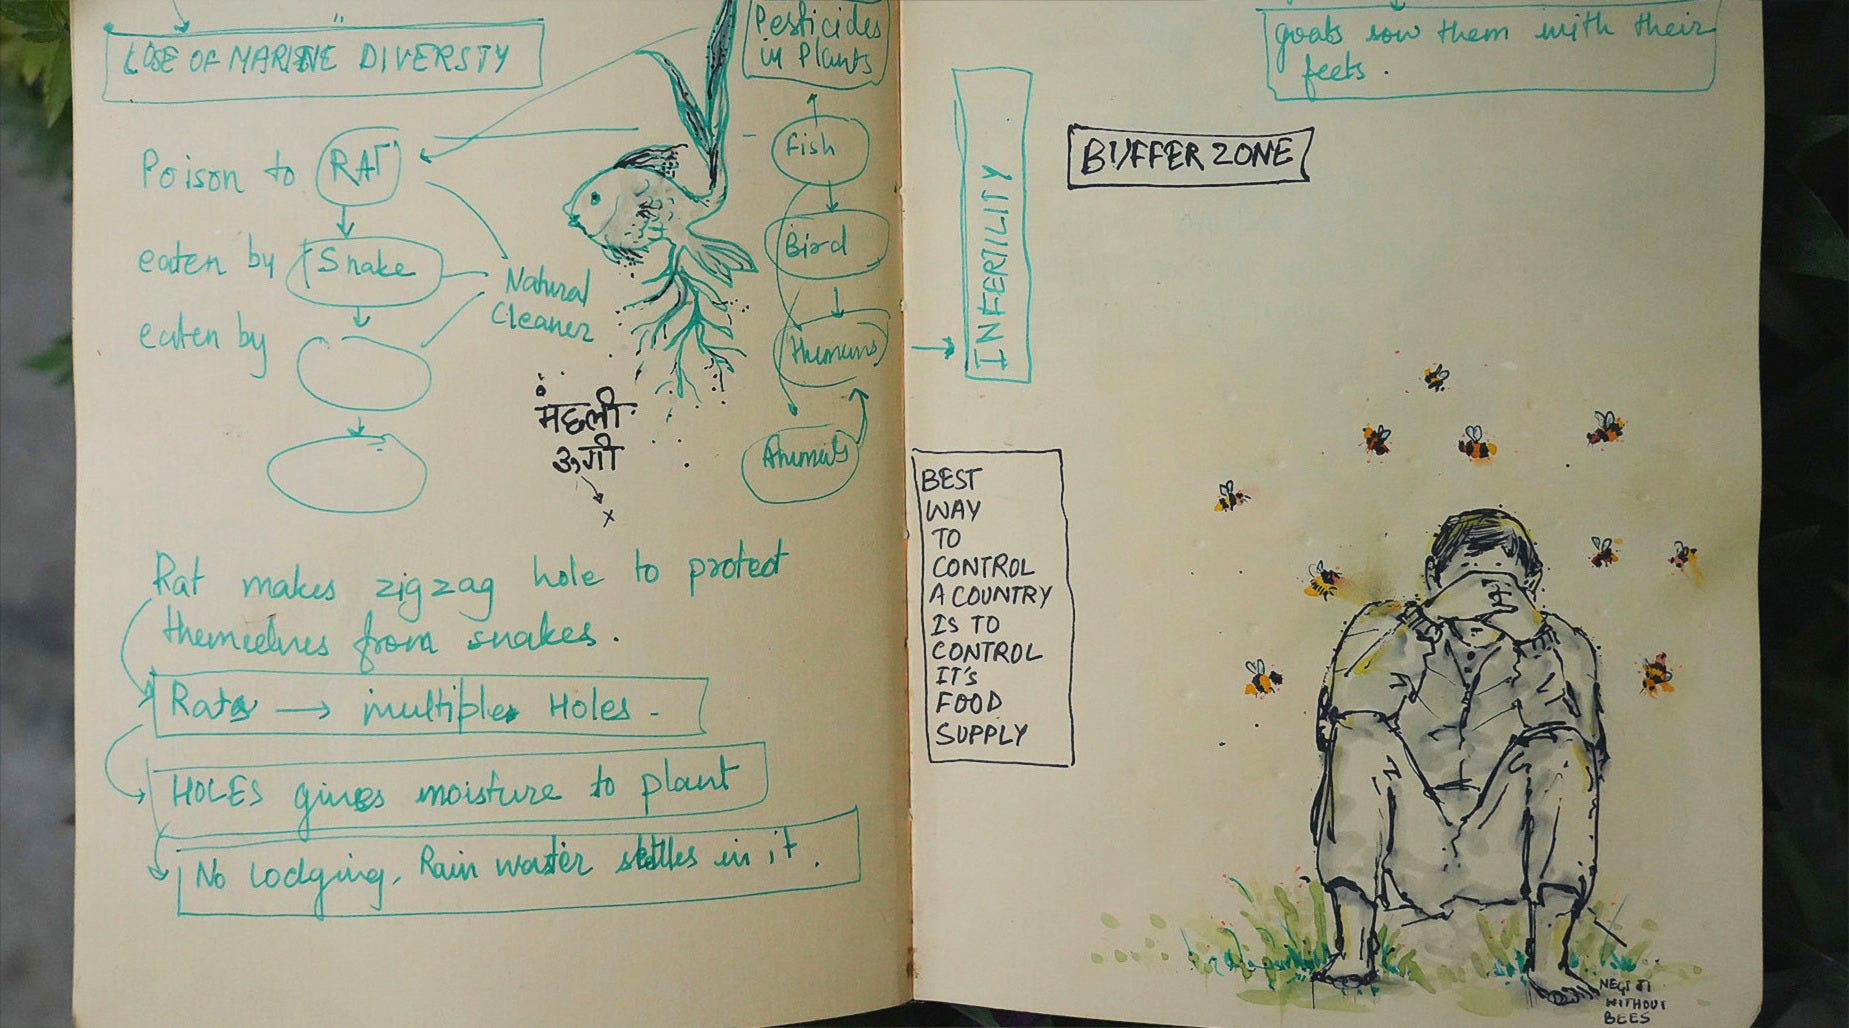 LOSE OF MARINE DIVERSTY
Poison to RAT
eaten by Snake
eaten by
Natural
Cleaner
Pesticides
in Plants
Fish
Bird
Humans
Animals
मछली
ऊगी
Rat makes zigzag hole to protect
themselves from snakes.
Rats → multiple Holes -
HOLES gives moisture to plant
No lodging, Rain water settles in it.
goats sow them with their
feets.
INFERTILITY
BUFFER ZONE
BEST
WAY
TO
CONTROL
A COUNTRY
IS TO
CONTROL
IT'S
FOOD
SUPPLY
NEGI JI
WITHOUT
BEES